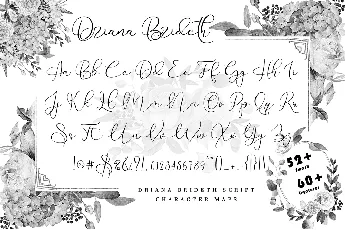 Driana Brideth
Aa Bb Cc Dd Ee Ff Gg Hh Ii
Jj Kk Ll Mm Nn Oo Pp Qq Rr
Ss Tt Uu Vv Ww Xx Yy Zz
DRIANA BRIDETH SCRIPT
CHARACTER MAPS
52+
60+